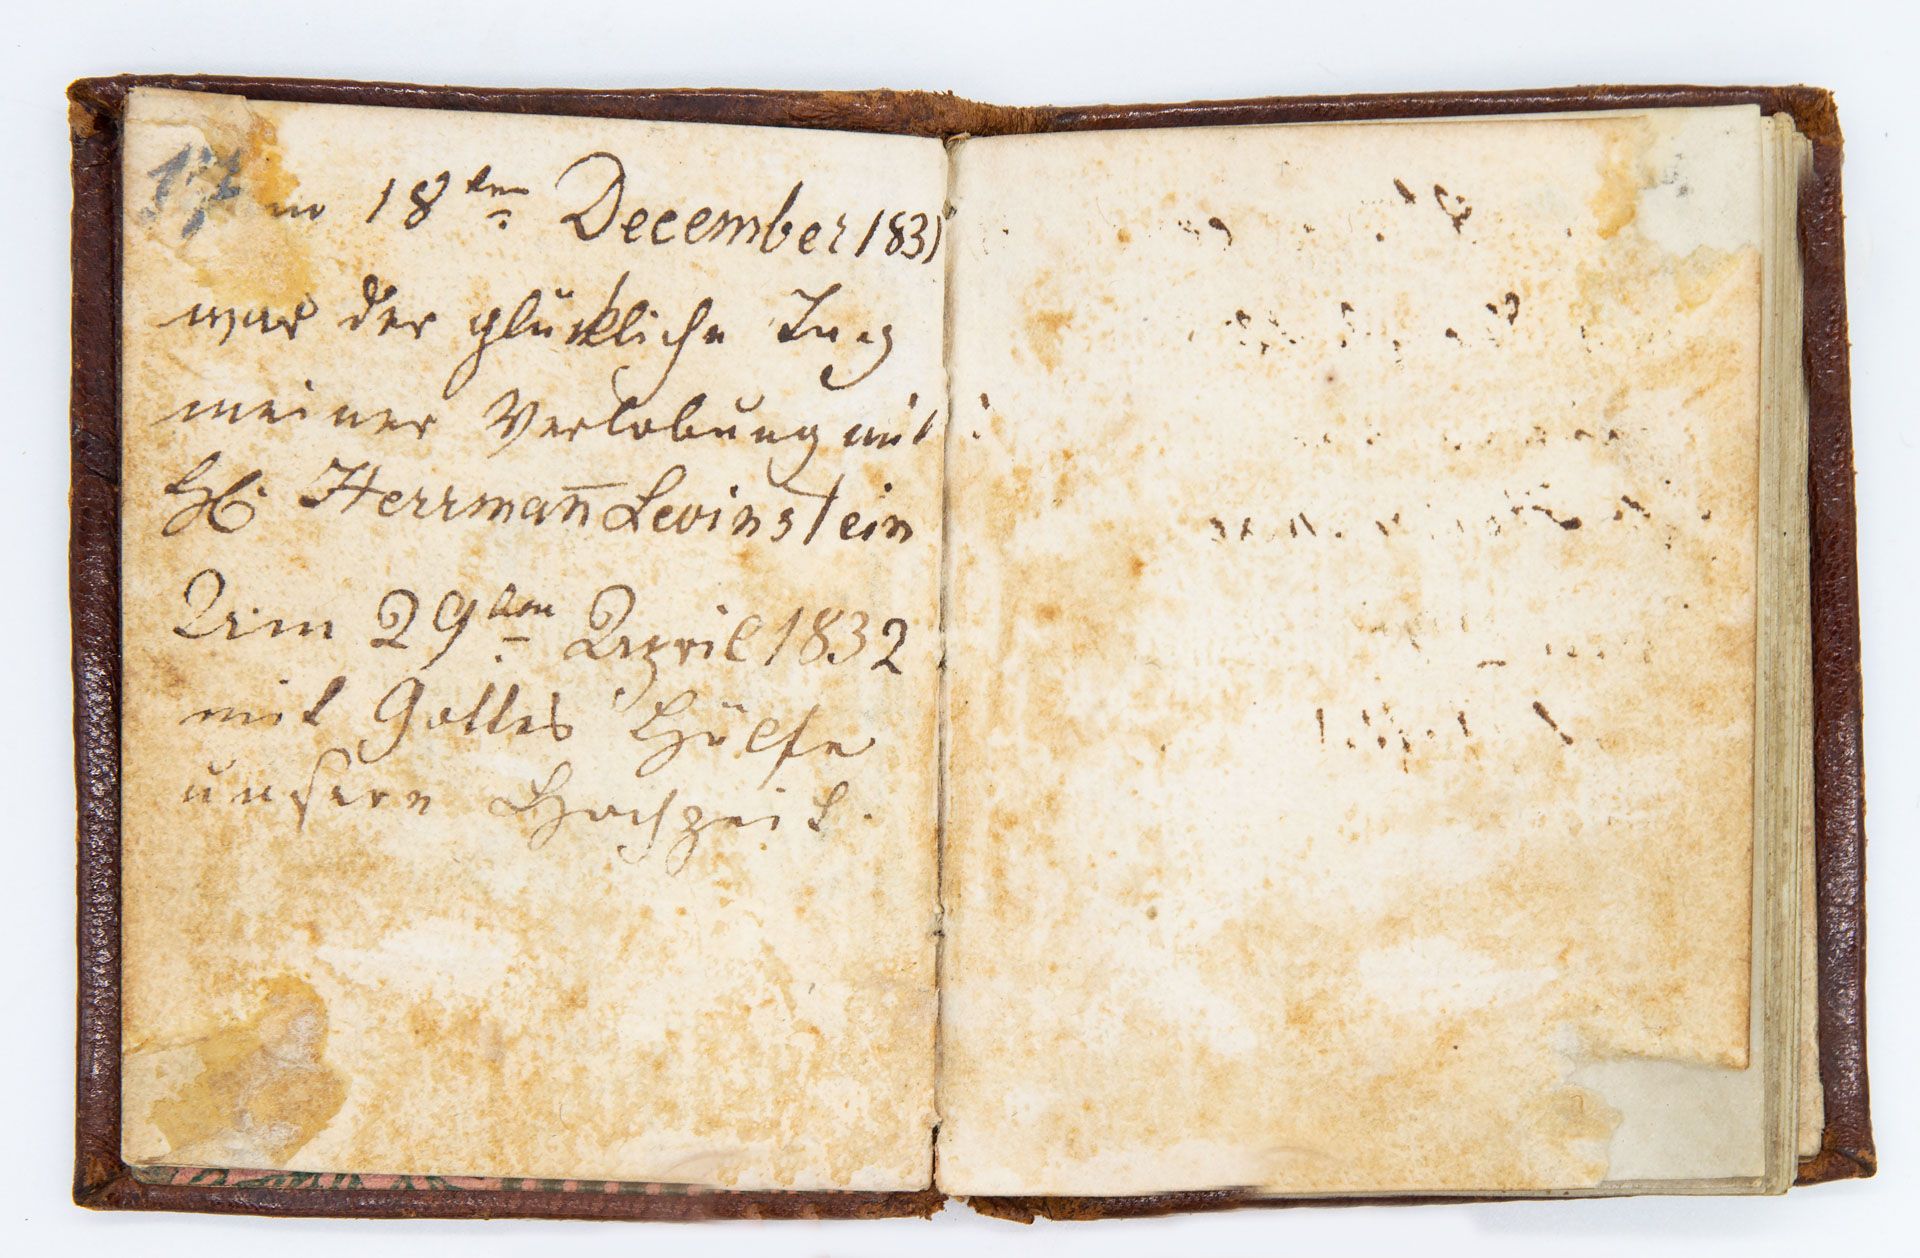 18ten December 1831
war der glückliche Tag
meiner Verlobung mit
H. Herrman̅ Levinstein
Am 29ten April 1832
mit Gottes Hülfe
unsere Hochzeit.